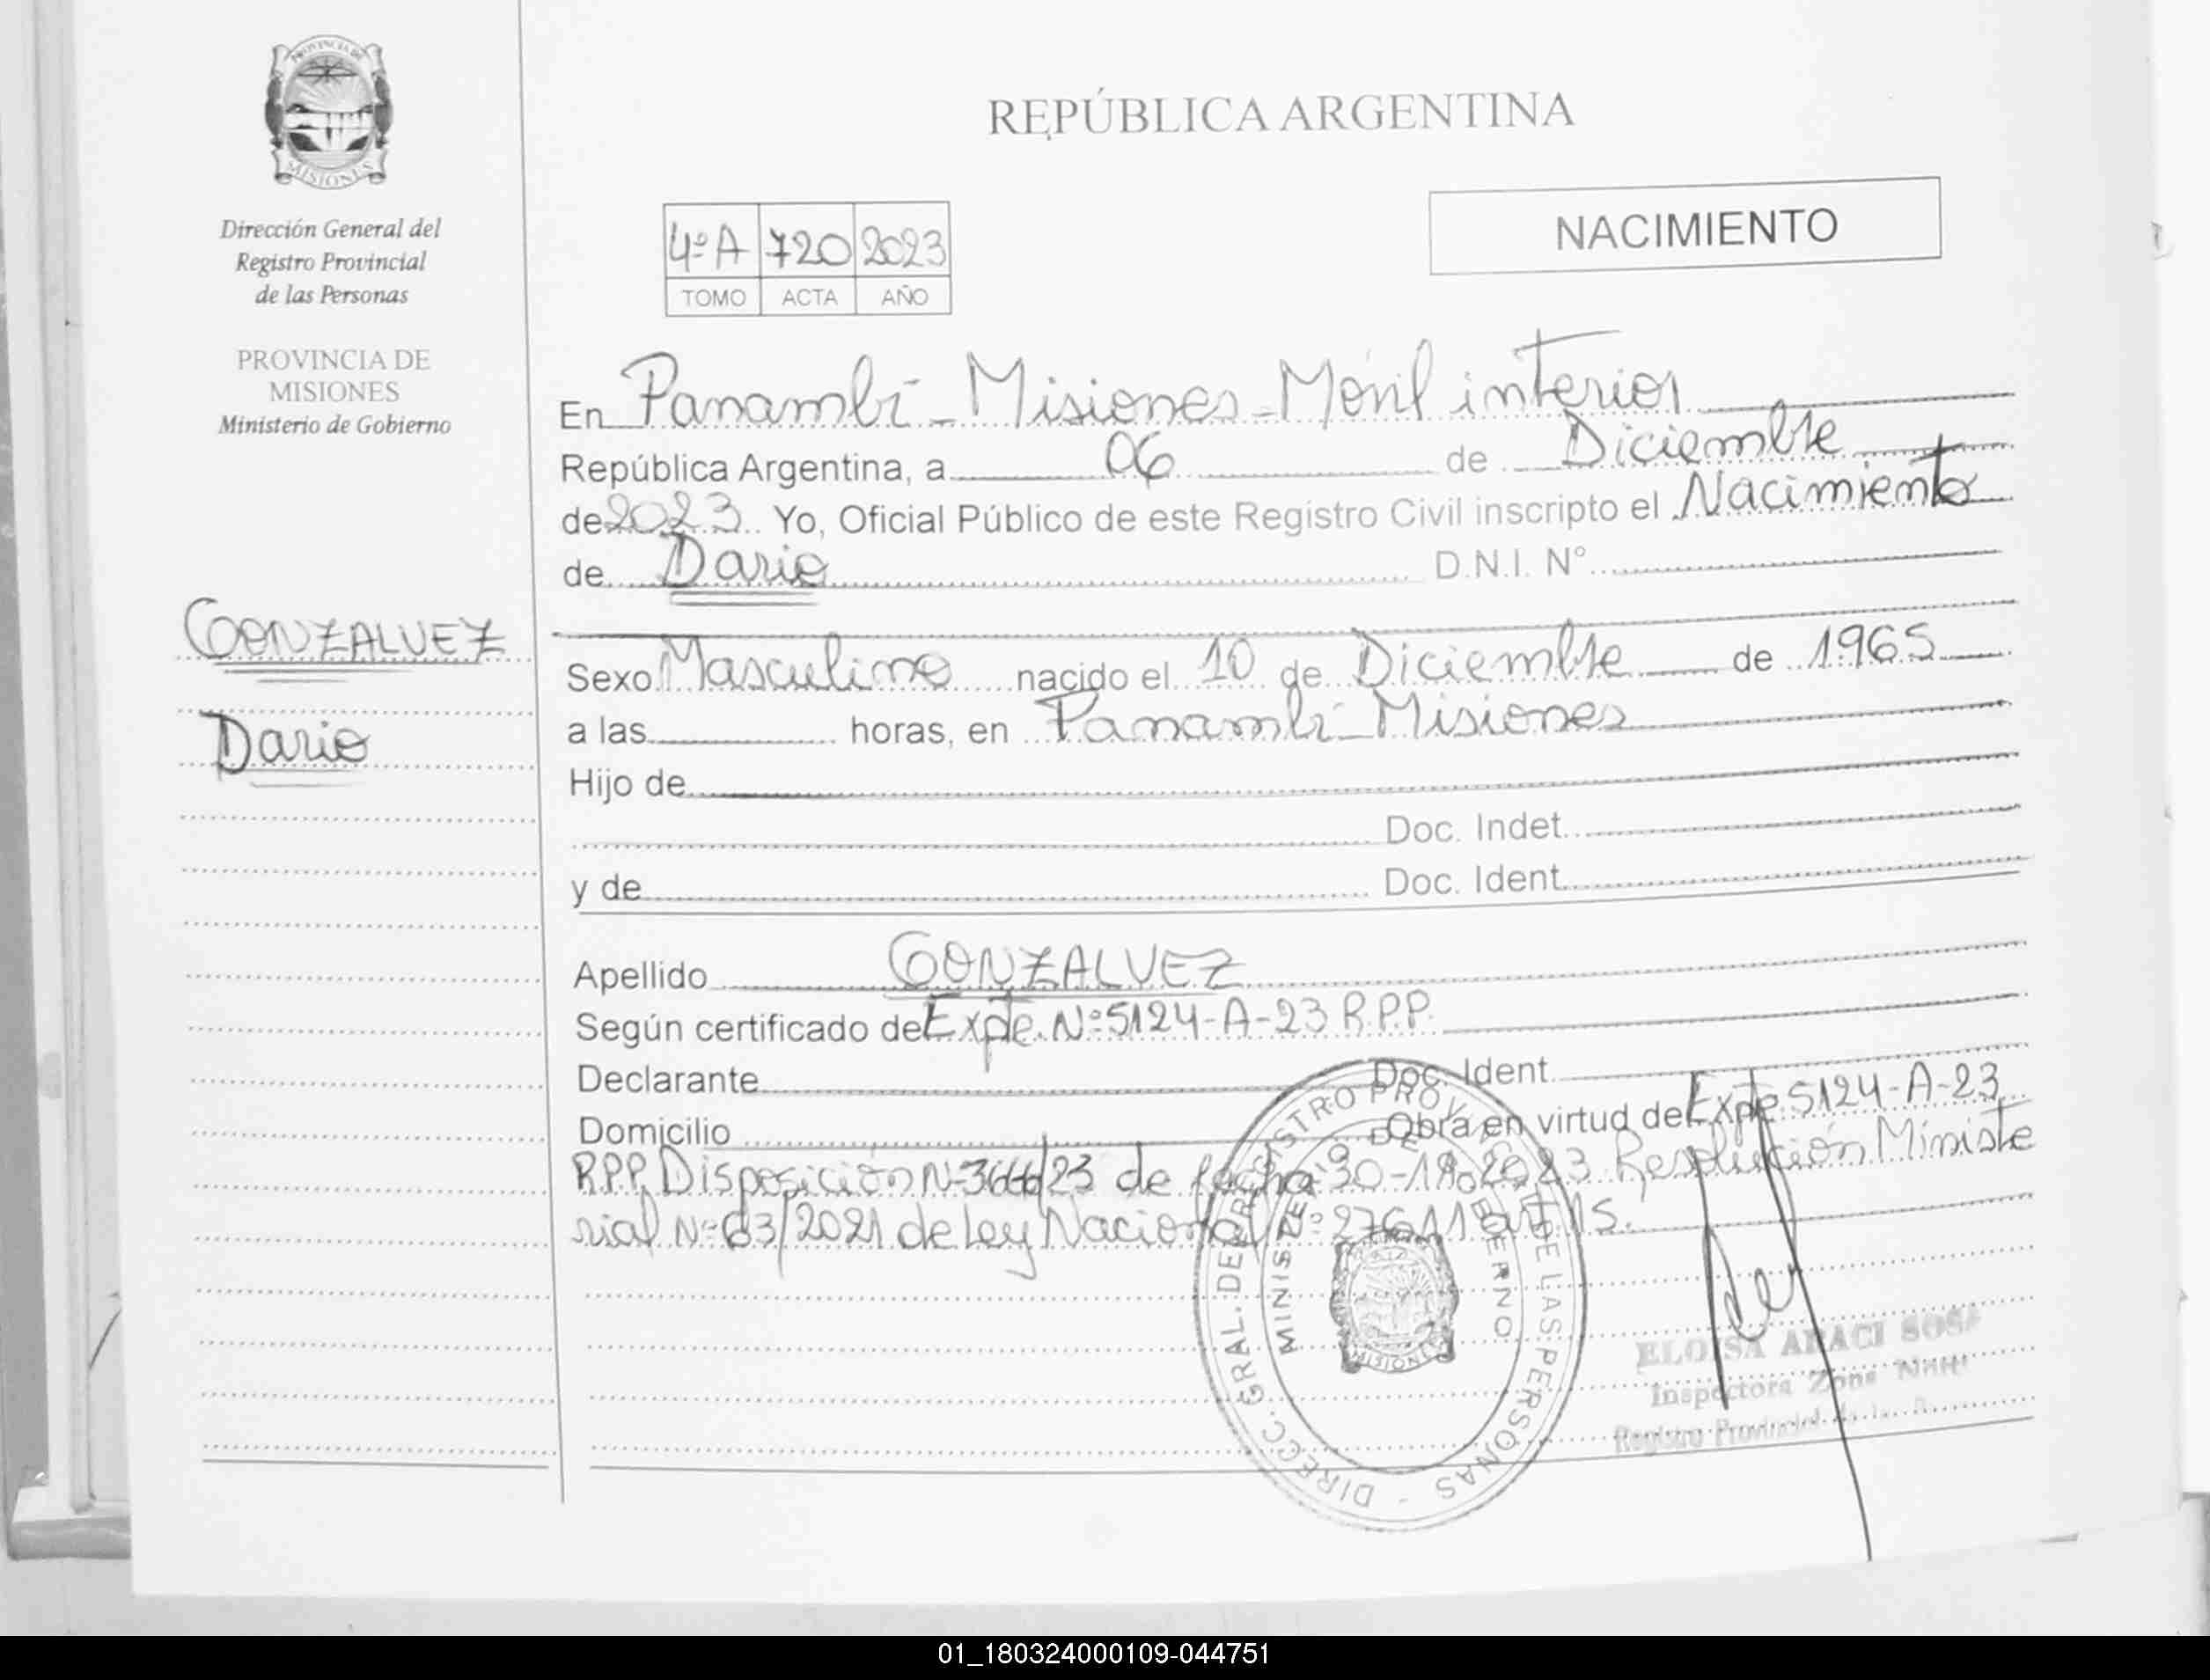 PROVINCIA DE
MISIONES
Dirección General del
Registro Provincial
de las Personas
PROVINCIA DE
MISIONES
Ministerio de Gobierno
GONZALVEZ
Dario
REPÚBLICA ARGENTINA
4º A 720 2023
TOMO ACTA AÑO
NACIMIENTO
En Panambí - Misiones - Móvil interior
República Argentina, a 06 de Diciembre
de 2023 Yo, Oficial Público de este Registro Civil inscripto el Nacimiento
de Dario D.N.I. Nº
Sexo Masculino nacido el 10 de Diciembre de 1965
a las horas, en Panambí - Misiones
Hijo de
Doc. Indet.
y de Doc. Ident.
Apellido GONZALVEZ
Según certificado de Expte. Nº 5124-A-23 R.P.P.
Declarante Doc. Ident.
Domicilio Obra en virtud de Expte 5124-A-23
R.P.P. Disposición Nº /23 de fecha 30- 2023 Resolución Ministe
rial Nº 63/2021 de Ley Nacional Nº 27611 art 15.
DIRECC. GRAL. DEL REGISTRO PROV. DE LAS PERSONAS -
MINISTERIO DE GOBIERNO
MISIONES
ELOISA ARACI SOSA
Inspectora Zona
Registro Provincial de las
01_180324000109-044751